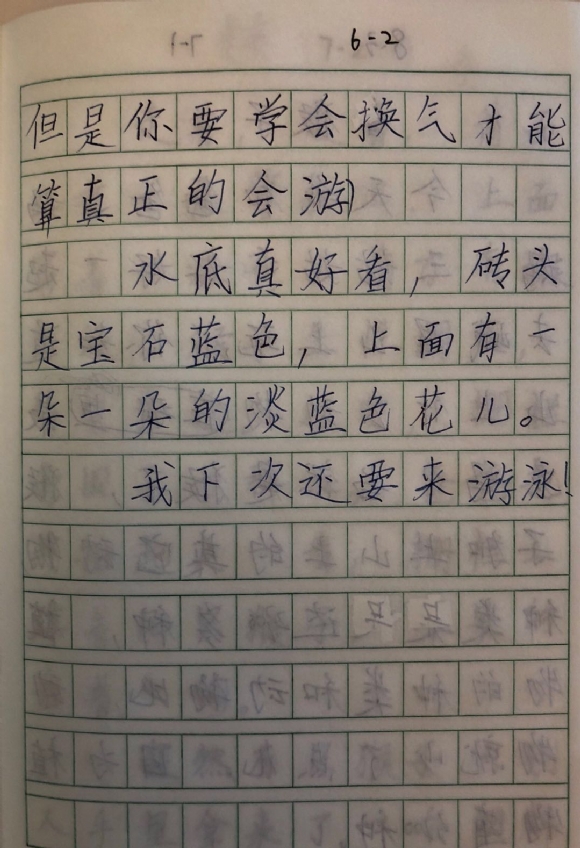 6-2
但是你要学会换气才能
算真正的会游)
水底真好看，砖头
是宝石蓝色，上面有一
朵一朵的淡蓝色花儿。
我下次还要来游泳!